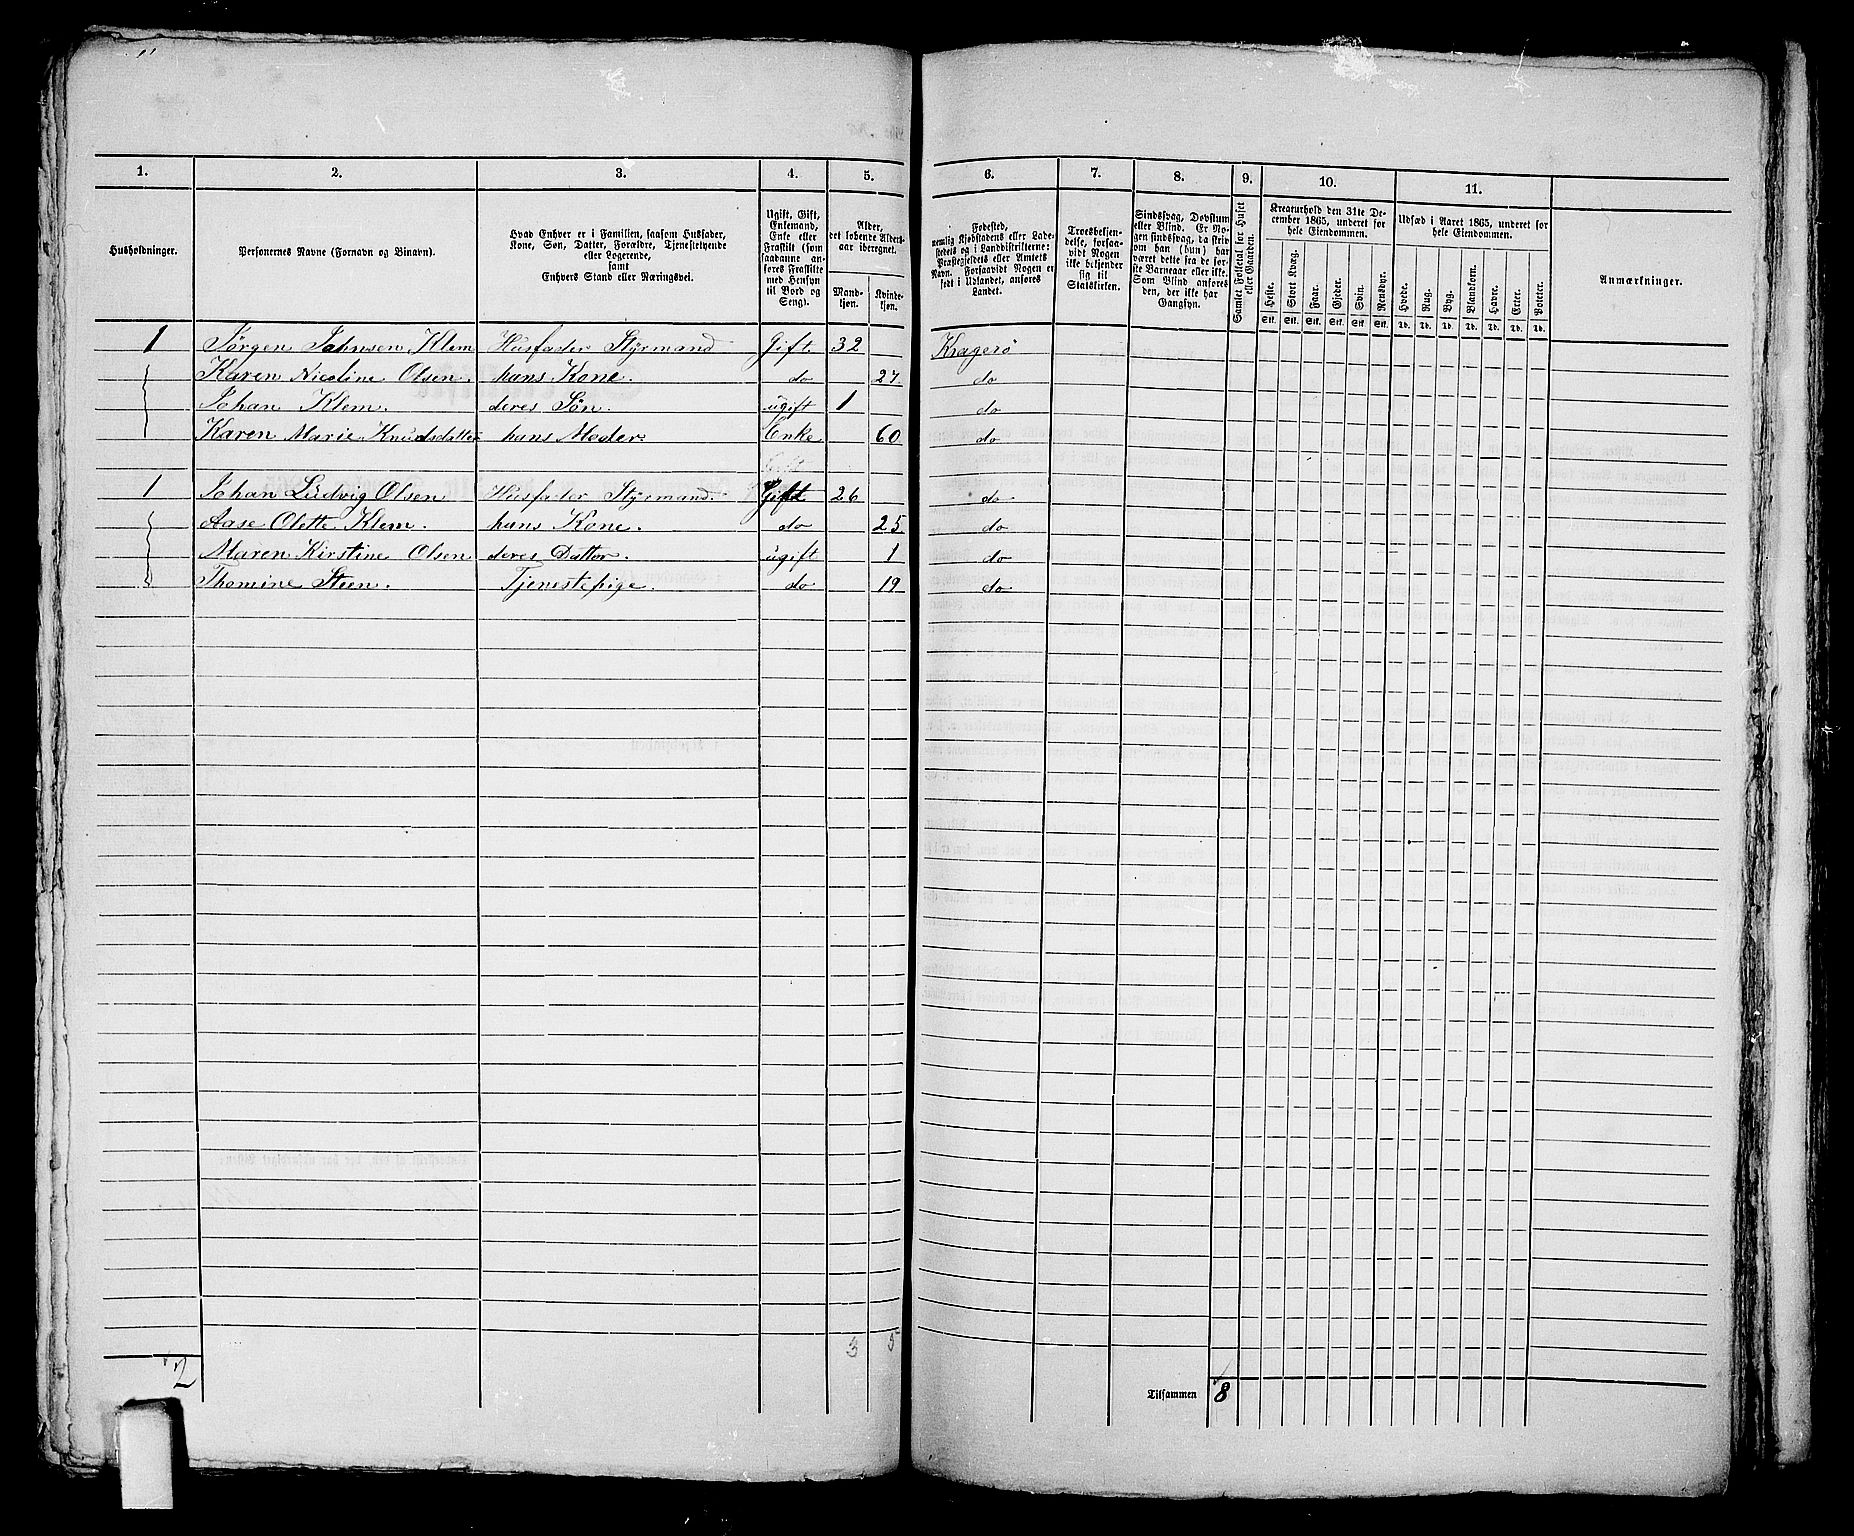 1. 2. 3. 4. 5. 6. 7. 8. 9. 10. 11.
Husholdninger.
Personernes Navne (Fornavn og Binavn).
Hvad Enhver er i Familien, saasom Husfader,
Kone, Søn, Datter, Forældre, Tjenestetyende
eller Logerende,
samt
Enhvers Stand eller Næringsvei.
Ugift, Gift,
Enkemand,
Enke eller
Fraskilt (som
saadanne an-
føres Fraskilte
med Hensyn
til Bord og
Seng).
Alder,
det løbende Alders-
aar iberegnet.
Mand-
kjøn.
Kvinde-
kjøn.
Fødested,
nemlig Kjøbstadens eller Lade-
stedets og i Landdistrikterne:
Præstegjeldets eller Amtets
Navn. Forsaavidt Nogen er
født i Udlandet, anføres
Landet.
Troesbekjen-
delse, forsaa-
vidt Nogen
ikke bekjender
sig til
Statskirken.
Sindssvag, Døvstum
eller Blind. Er No-
gen sindssvag, da skriv
om han (hun) har
været dette fra de før-
ste Barneaar eller ikke.
Som Blind anføres
den, der ikke har
Gangsyn.
Samlet Folketal for Huset
eller Gaarden.
Kreaturhold den 31te De-
cember 1865, underet for
hele Eiendommen.
Heste. Stort Kvæg. Faar. Gjeder. Svin. Rensdyr.
Stk. Stk. Stk. Stk. Stk. Stk.
Udsæd i Aaret 1865, underet for
hele Eiendommen.
Hvede. Rug. Byg. Blandkorn. Havre. Erter. Poteter.
Td. Td. Td. Td. Td. Td. Td.
Anmærkninger.
1 Jørgen Johnsen Klem Husfader Styrmand Gift. 32 Kragerö
Karen Nicoline Olsen. hans Kone. do 27 do
Johan Klem. deres Søn. ugift 1 do
Karen Marie Knudsdatter hans Moder Enke 60 do
1 Johan Ludvig Olsen Husfader Styrmand. Gift 26 do
Aase Olette Klem. hans Kone. do 25 do
Maren Kirstine Olsen deres Datter. ugift 1 do
Thomine Steen. Tjenestepige. do 19 do
3 5
2
Tilsammen 8